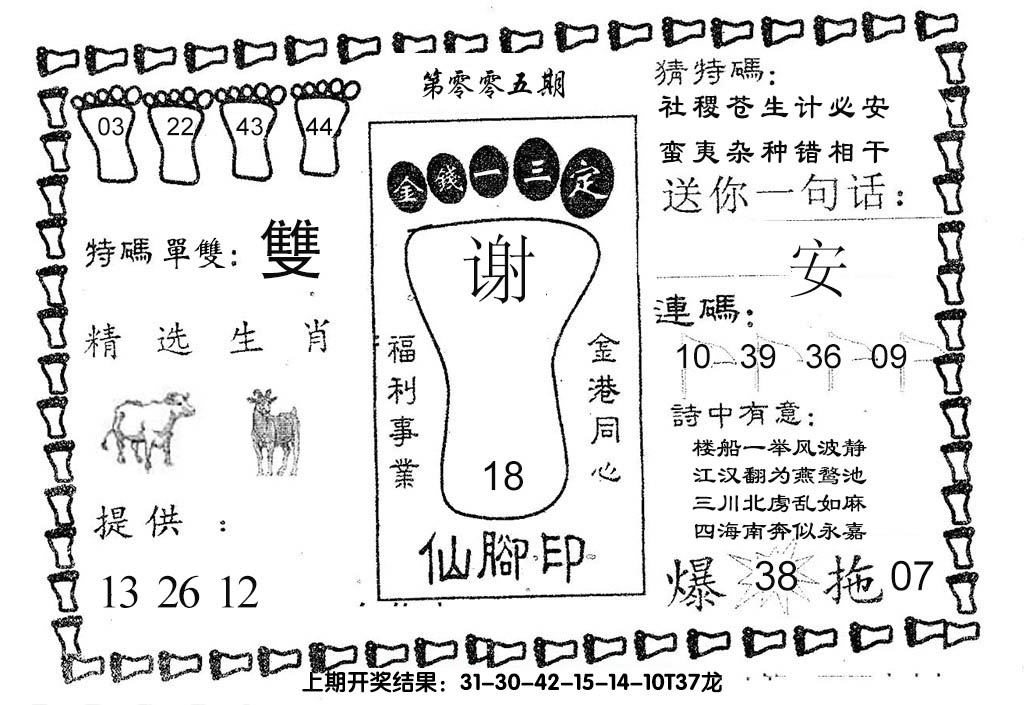 第零零五期
03 22 43 44
特碼單雙：雙
精选生肖
提供：
13 26 12
金錢一三定
谢
福利事業
金港同心
18
仙腳印
猜特碼：
社稷苍生计必安
蛮夷杂种错相干
送你一句话：
安
連碼：
10 39 36 09
詩中有意：
楼船一举风波静
江汉翻为燕鹜池
三川北虏乱如麻
四海南奔似永嘉
爆 38 拖 07
上期开奖结果：31-30-42-15-14-10T37龙